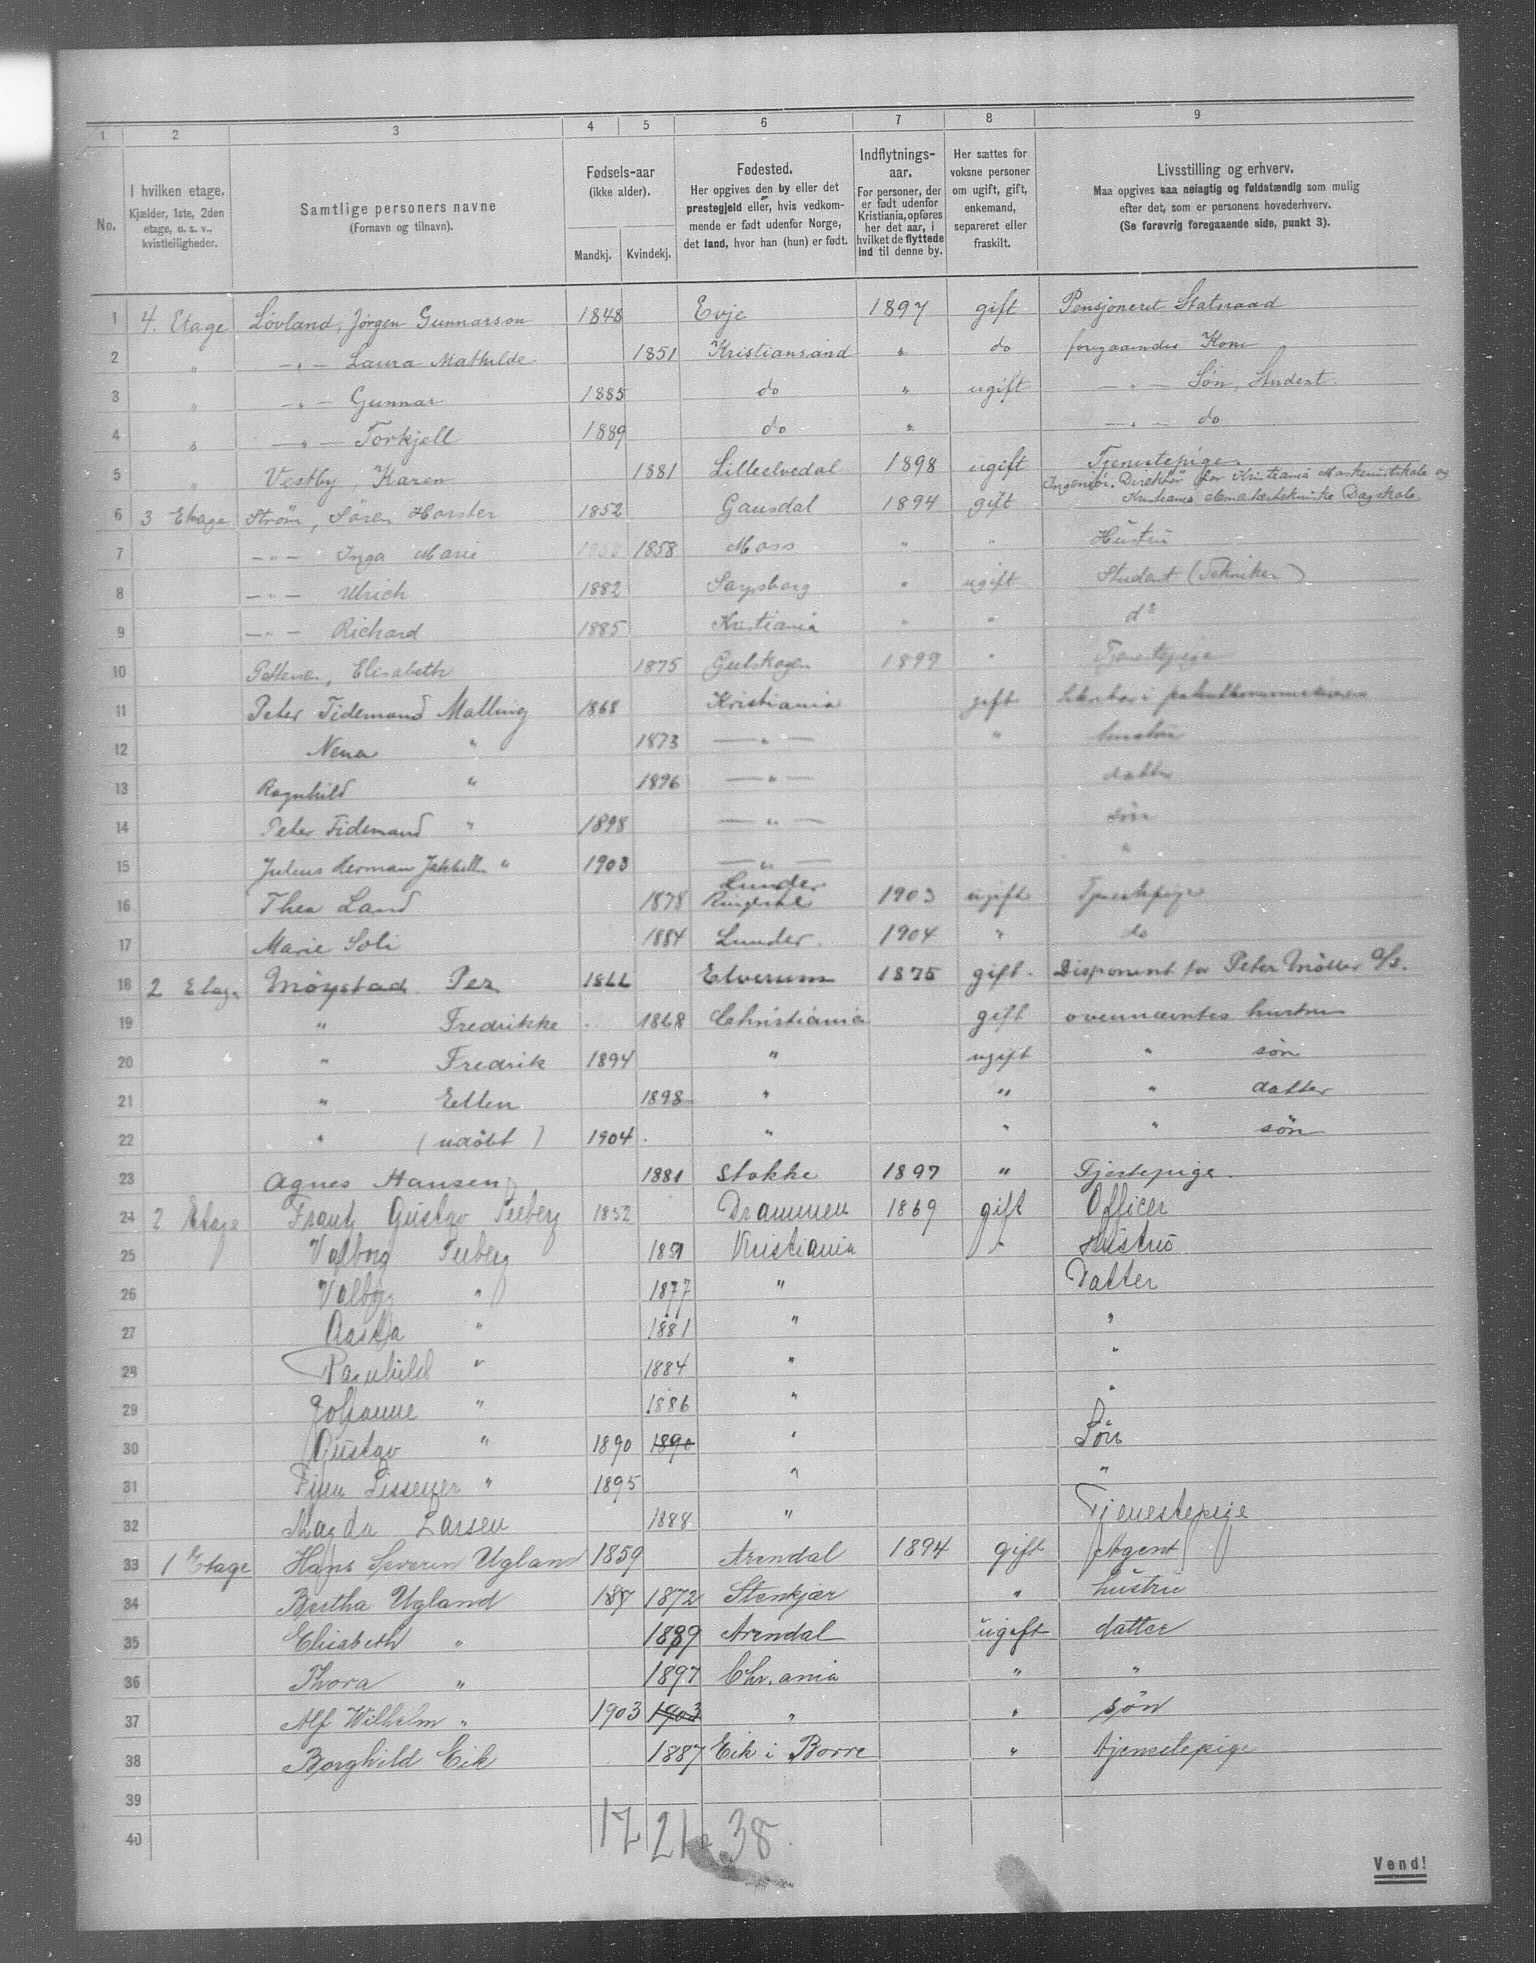 1 2 3 4 5 6 7 8 9
No.
I hvilken etage.
Kjælder, 1ste, 2den
etage, o. s. v.,
kvistleiligheder.
Samtlige personers navne
(Fornavn og tilnavn).
Fødsels-aar
(ikke alder).
Mandkj. Kvindekj.
Fødested.
Her opgives den by eller det
prestegjeld eller, hvis vedkom-
mende er født udenfor Norge,
det land, hvor han (hun) er født.
Indflytnings-
aar.
For personer, der
er født udenfor
Kristiania, opføres
her det aar, i
hvilket de flyttede
ind til denne by.
Her sættes for
voksne personer
om ugift, gift,
enkemand,
separeret eller
fraskilt.
Livsstilling og erhverv.
Maa opgives saa nøiagtig og fuldstændig som mulig
efter det, som er personens hovederhverv.
(Se forøvrig foregaaende side, punkt 3).
1 4. Etage Løvland, Jørgen Gunnarson 1848 Evje 1897 gift Pensjoneret Statsraad
2 " — " — Laura Mathilde 1851 Kristiansand " do foregaaendes Kone
3 " — " — Gunnar 1885 do " ugift — " — Søn, Student.
4 " — " — Torkjell 1889 do " — " — do
5 " Vestby, Karen 1881 Lilleelvedal 1898 ugift Tjenestepige.
Ingeniør. Direktør for Kristiania Maskinistskole og
6 3 Etage Strøm, Sören 1852 Gausdal 1894 gift Kristiania elementærtekniske Dagskole
7 — " — Inga Marie 1858 Moss " " Hustru
8 — " — Ulrich 1882 Sarpsborg " ugift Student (Tekniker)
9 — " — Richard 1885 Kristiania " " do
10 Pettersen, Elisabeth 1875 Gulskogen 1899 " Tjenestepige
11 Peter Tidemand Malling 1868 Kristiania gift
12 Nena " 1873 — " — " hustru
13 Ragnhild " 1896 — " — datter
14 Peter Tidemand " 1898 — " — søn
15 Julius Herman " 1903 — " — "
Lunder
16 Thea Land 1878 Ringerike 1903 ugift Tjenestepige
17 Marie Soli 1884 Lunder. 1904 " do
18 2 Etage Møystad Per 1866 Elverum 1875 gift. Disponent for Peter Møller A/S.
19 " Fredrikke 1868 Christiania gift ovennævntes hustru
20 " Fredrik 1894 " ugift " søn
21 " Ellen 1898 " " " datter
22 " (udøbt) 1904 " " " søn
23 Agnes Hansen 1881 Stokke 1897 " Tjestepige.
24 2 Etage Frantz Gustav Seeberg 1852 Drammen 1869 gift Officer
25 Valborg Seeberg 1851 Kristiania " Hustru
26 Valborg " 1877 " Datter
27 Aasta " 1881 " "
28 Ragnhild " 1884 " "
29 Johanne " 1886 " "
30 Gustav " 1890 1890 " Søn
31 Finn " 1895 " "
32 Magda Larsen 1888 " Tjenestepige
33 1ste Etage Hans Severin Ugland 1859 Arendal 1894 gift Agent
34 Bertha Ugland 187 1872 Stenkjær " hustru
35 Elisabeth " 1889 Arendal ugift datter
36 Thora " 1897 Chr.ania " "
37 Alf Wilhelm " 1903 1903 " " søn
38 Borghild Eik 1887 Eik i Borre " tjenestepige
39
40
17 21 = 38.
Vend!